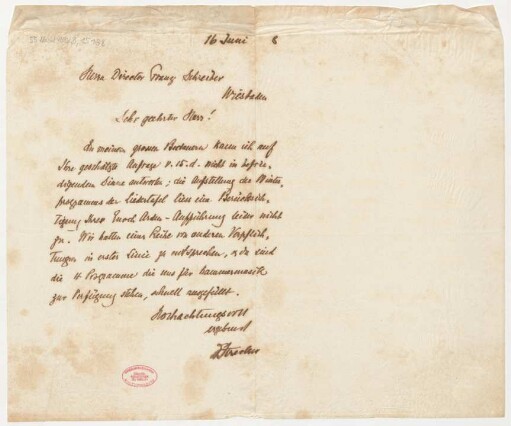 16 Juni 6
Herrn Director Franz Schreiber
Wiesbaden
Sehr geehrter Herr!
Zu meinem grossen Bedauern kann ich auf
Ihre geschätzte Anfrage v. 15. d. nicht in befrie-
digendem Sinne antworten; die Aufstellung des Winter-
programmes der Liedertafel liess eine Berücksich-
tigung Ihrer Enoch Arden-Aufführung leider nicht
zu. Wir hatten einer Reihe von anderen Verpflich-
tungen in erster Linie zu entsprechen, u. da sind
die 4 Programme die uns für Kammermusik
zur Verfügung stehen, schnell ausgefüllt.
Hochachtungsvoll
ergebenst
Strecker